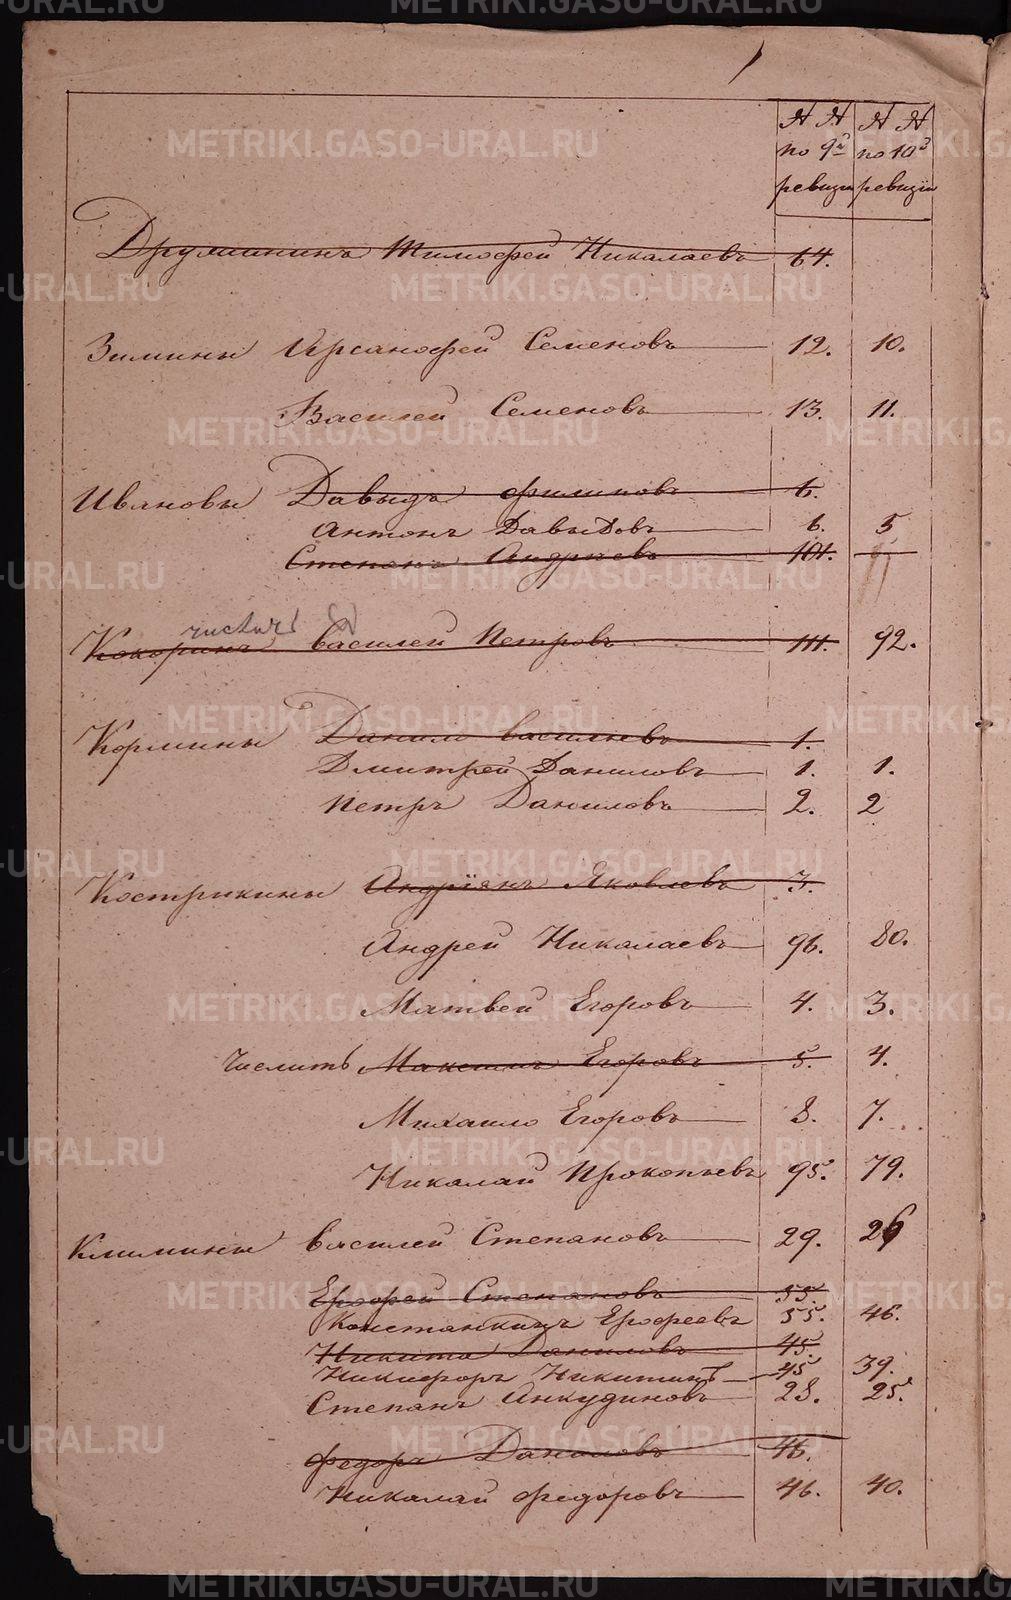 № № № №
по 9й по 10й
ревизіи ревизіи
Дружининъ Тимофей Николаевъ 64.
Зимины Ирсанофей Семеновъ 12. 10.
Василей Семеновъ 13. 11.
Ивановы Давыдъ Филиповъ 6.
Антонъ Давыдовъ 6. 5
Степанъ Андреевъ 101.
числить
Кокоринъ Василей Петровъ 111. 92.
Кормины Данило Васильевъ 1.
Дмитрей Даниловъ 1. 1.
Петръ Даниловъ 2. 2
Кострикины Андріянъ Яковлевъ 3.
Андрей Николаевъ 96. 80.
Матвей Егоровъ 4. 3.
Числить Максимъ Егоровъ 5. 4.
Михаило Егоровъ 8. 7.
Николай Прокопьевъ 95. 79.
Климины Василей Степановъ 29. 26
Ерофей Степановъ 55.
Константинъ Ерофеевъ 55. 46.
Никита Даниловъ 45.
Никифоръ Никитинъ 45 39.
Степанъ Анкудиновъ 28. 25.
Федоръ Даниловъ 46.
Николай Федоровъ 46. 40.
METRIKI.GASO-URAL.RU